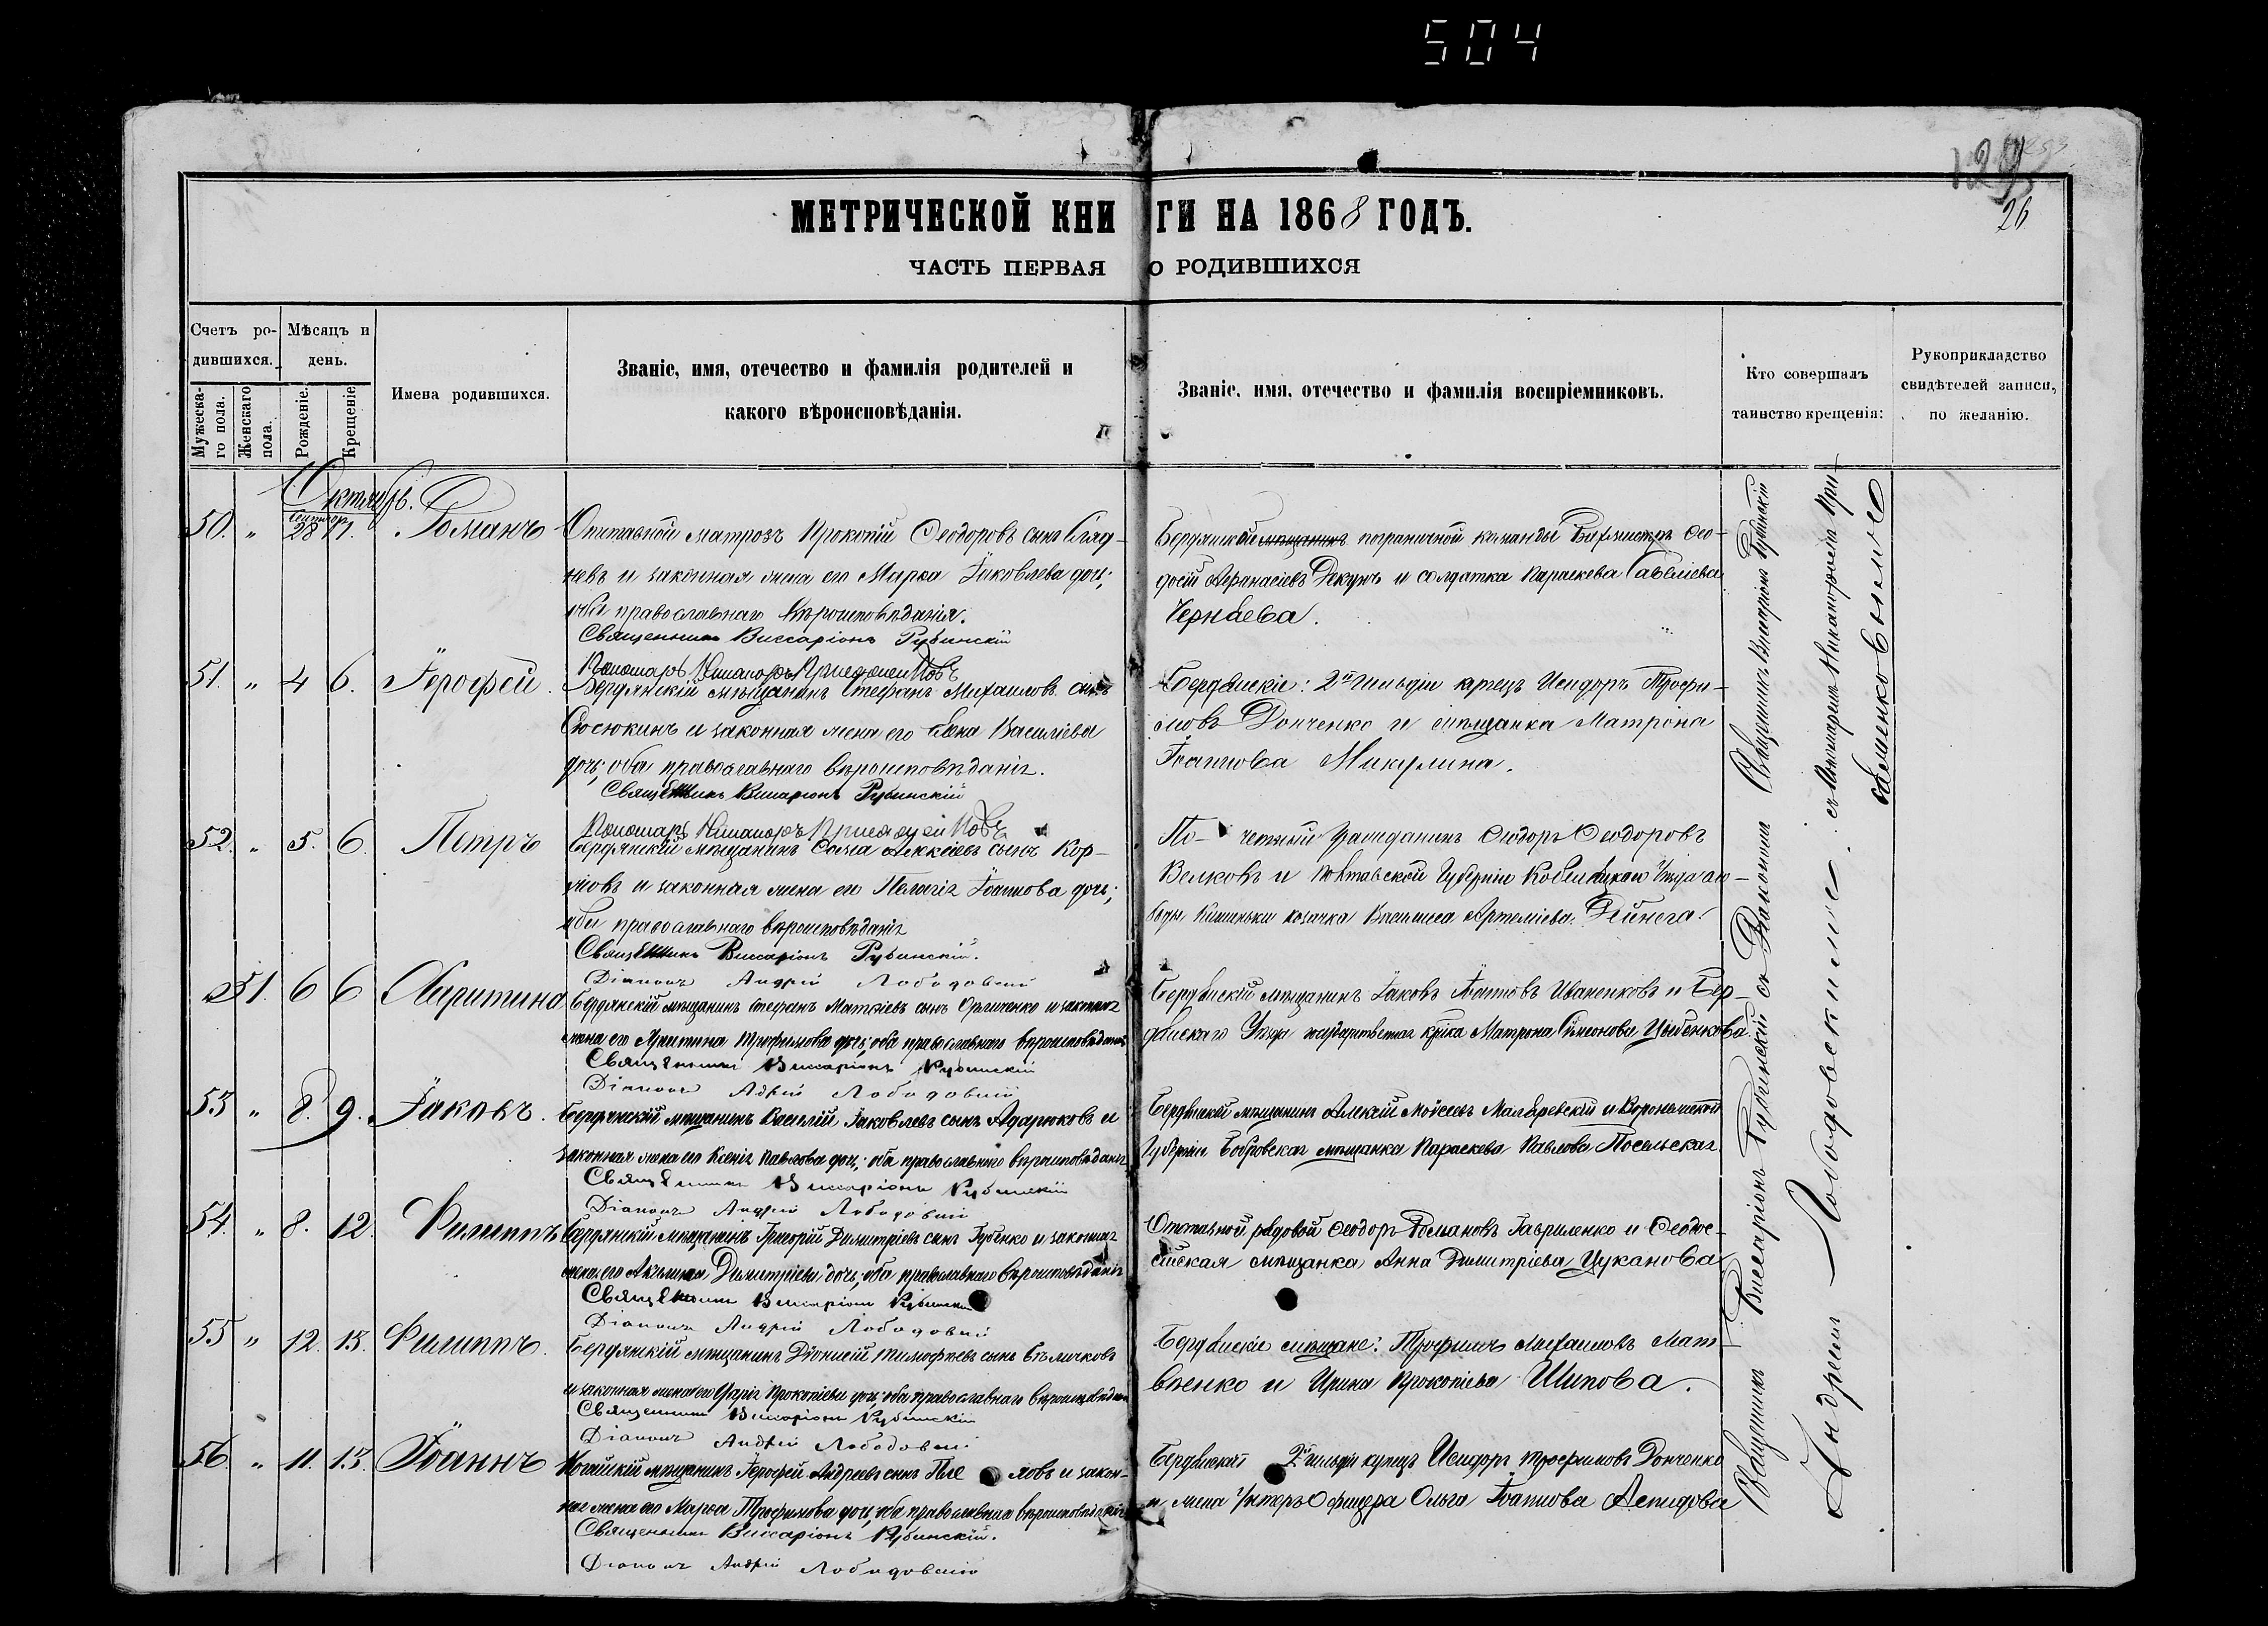 504
129
26
МЕТРИЧЕСКОЙ КНИГИ НА 1868 ГОДЪ.
ЧАСТЬ ПЕРВАЯ О РОДИВШИХСЯ
Счетъ родившихся.
Мужескаго пола.
Женскаго пола.
Мѣсяцъ и день.
Рожденіе.
Крещеніе
Имена родившихся.
Званіе, имя, отечество и фамилія родителей и
какого вѣроисповѣданія.
Званіе, имя, отечество и фамилія воспріемниковъ.
Кто совершалъ
таинство крещенія:
Рукоприкладство
свидѣтелей записи,
по желанію.
Октябрь.
50. " Сентябр. 28 1. Романъ
Отставной матрозъ Прокопій Ѳеодоровъ сынъ
и законная жена его Марѳа Іаковлева дочь;
оба православнаго вѣроисповѣданія.
Священникъ Виссаріонъ Рубинскій
Бердянской пограничной команды Вахмистръ Ѳео-
досій Аѳанасіевъ Декунъ и солдатка Параскева Савеліева
Чернаева.
51. " 4 6. Іероѳей.
Пономарь Никаноръ
Бердянскій мѣщанинъ Стефанъ Михаиловъ сынъ
Сюсюкинъ и законная жена его Елена Василіева
дочь; оба православнаго вѣроисповѣданія.
Священникъ Виссаріонъ Рубинскій
Бердянскіе: 2й гильдіи купецъ Исидоръ Трофи-
мовъ Донченко и мѣщанка Матрона
Іоаннова Микулина.
52. " 5. 6. Петръ
Пономарь Никаноръ
Бердянскій мѣщанинъ Савва Алексіевъ сынъ Кор-
и законная жена его Пелагія Іоаннова дочь;
оба православнаго вѣроисповѣданія
Священникъ Виссаріонъ Рубинскій.
Діаконъ Андрій Лободовскій
По- четный гражданинъ Ѳеодоръ Ѳеодоровъ
Велковъ и Полтавской Губерніи Кобеляцкаго Уѣзда сло-
боды Кишиньки козачка Василиса Артеміева Дейнега.
51. 6 6 Харитина
Бердянскій мѣщанинъ Стефанъ Матѳіевъ сынъ и законная
жена его Трофимова дочь; оба православнаго вѣроисповѣданія
Священникъ Виссаріонъ Рубинскій
Діаконъ Адрій Лободовскій
Бердянскій мѣщанинъ Іаковъ Іоанновъ Иваненковъ и Бер-
дянскаго Уѣзда Матрона Симеонова Цыбенкова.
53 " 8. 9. Іаковъ.
Бердянскій мѣщанинъ Василій Іаковлевъ сынъ Адарюковъ и
законная жена его Ксенія Павлова дочь; оба православнаго вѣроисповѣданія
Священникъ Виссаріонъ Рубинскій
Діаконъ Андрій Лободовскій
Бердянскій мѣщанинъ Алексій Моѵсеевъ Малѣревскій и Воронежской
Губерніи Бобровская мѣщанка Параскева Павлова Посельская
54. " 8. 12. Филиппъ
Бердянскій мѣщанинъ Григорій Димитріевъ сынъ Губенко и законная
жена его Акилина Димитріева дочь; оба православнаго вѣроисповѣданія
Священникъ Виссаріонъ Рубинскій
Діаконъ Андрій Лободовскій
Отставной рядовой Ѳеодоръ Романовъ Гавриленко и Ѳеодос-
сійская мѣщанка Анна Димитріева Цуканова
55 " 12. 13. Филиппъ.
Бердянскій мѣщанинъ Діонисій Тимофѣевъ сынъ Бѣличковъ
и законная жена его Дарія Прокопіева дочь; оба православнаго вѣроисповѣданія
Священникъ Виссаріонъ Рубинскій
Діаконъ Андрій Лободовскій
Бердянскіе мѣщане: Трофимъ Михаиловъ Мат-
вѣенко и Ирина Прокопіева Шипова.
56. " 11. 13. Іоаннъ
Ногайскій мѣщанинъ Іероѳей Андреевъ сынъ и закон-
ная жена его Марѳа Трофимова дочь; оба православнаго вѣроисповѣданія
Священникъ Виссаріонъ Рубинскій.
Діаконъ Андрій Лободовскій
Бердянскій 2й гильдіи купецъ Исидоръ Трофимовъ Донченко
и жена Унтеръ Офицера Ольга Іоаннова
Священникъ Виссаріонъ Рубинскій съ Діакономъ
Андреемъ Лободовскимъ.
Священникъ Виссаріонъ Рубинскій
съ Пономаремъ Никаноромъ